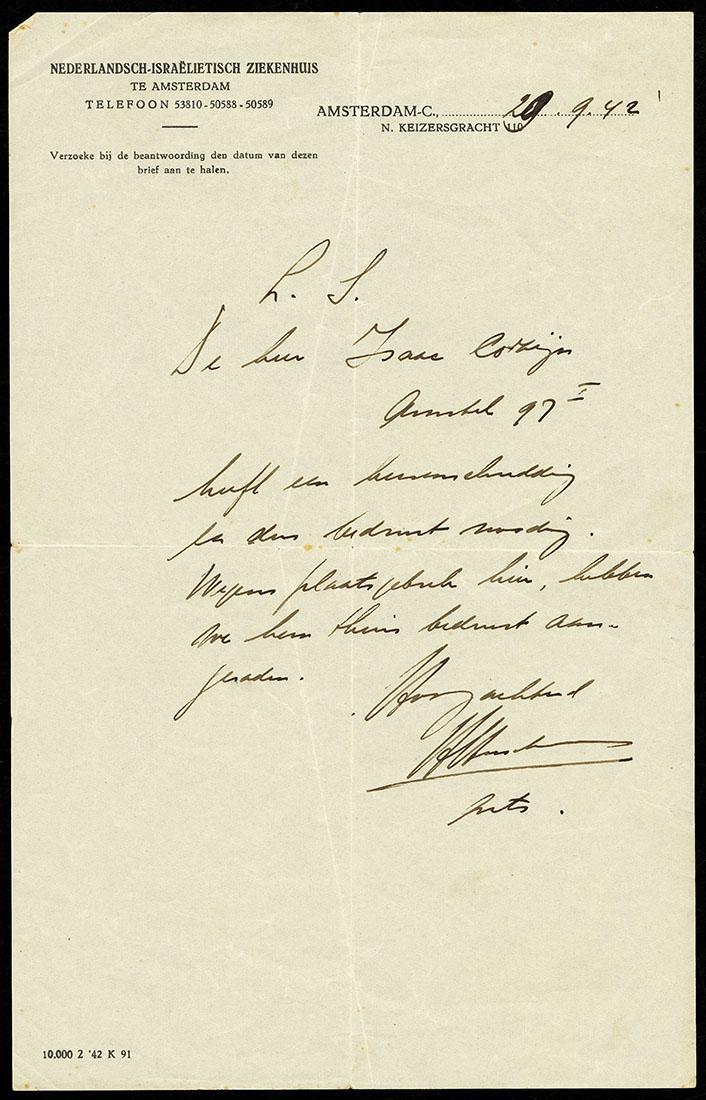 NEDERLANDSCH-ISRAËLIETISCH ZIEKENHUIS
TE AMSTERDAM
TELEFOON 53810-50588-50589
AMSTERDAM-C., 29.9.42
N. KEIZERSGRACHT 110
Verzoeke bij de beantwoording den datum van dezen
brief aan te halen.
L. S.
De heer Isaac
Amstel 97 I
heeft een hersenschudding
en dus bedrust noodig.
Wegens plaatsgebrek hier, hebben
we hem thuis bedrust aan-
geraden.
Hoogachtend
Arts.
10.000 2 '42 K 91